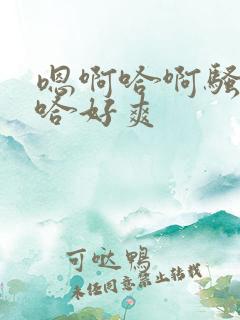 嗯啊哈啊骚
哈好爽
可哒鸭
未经同意禁止转载